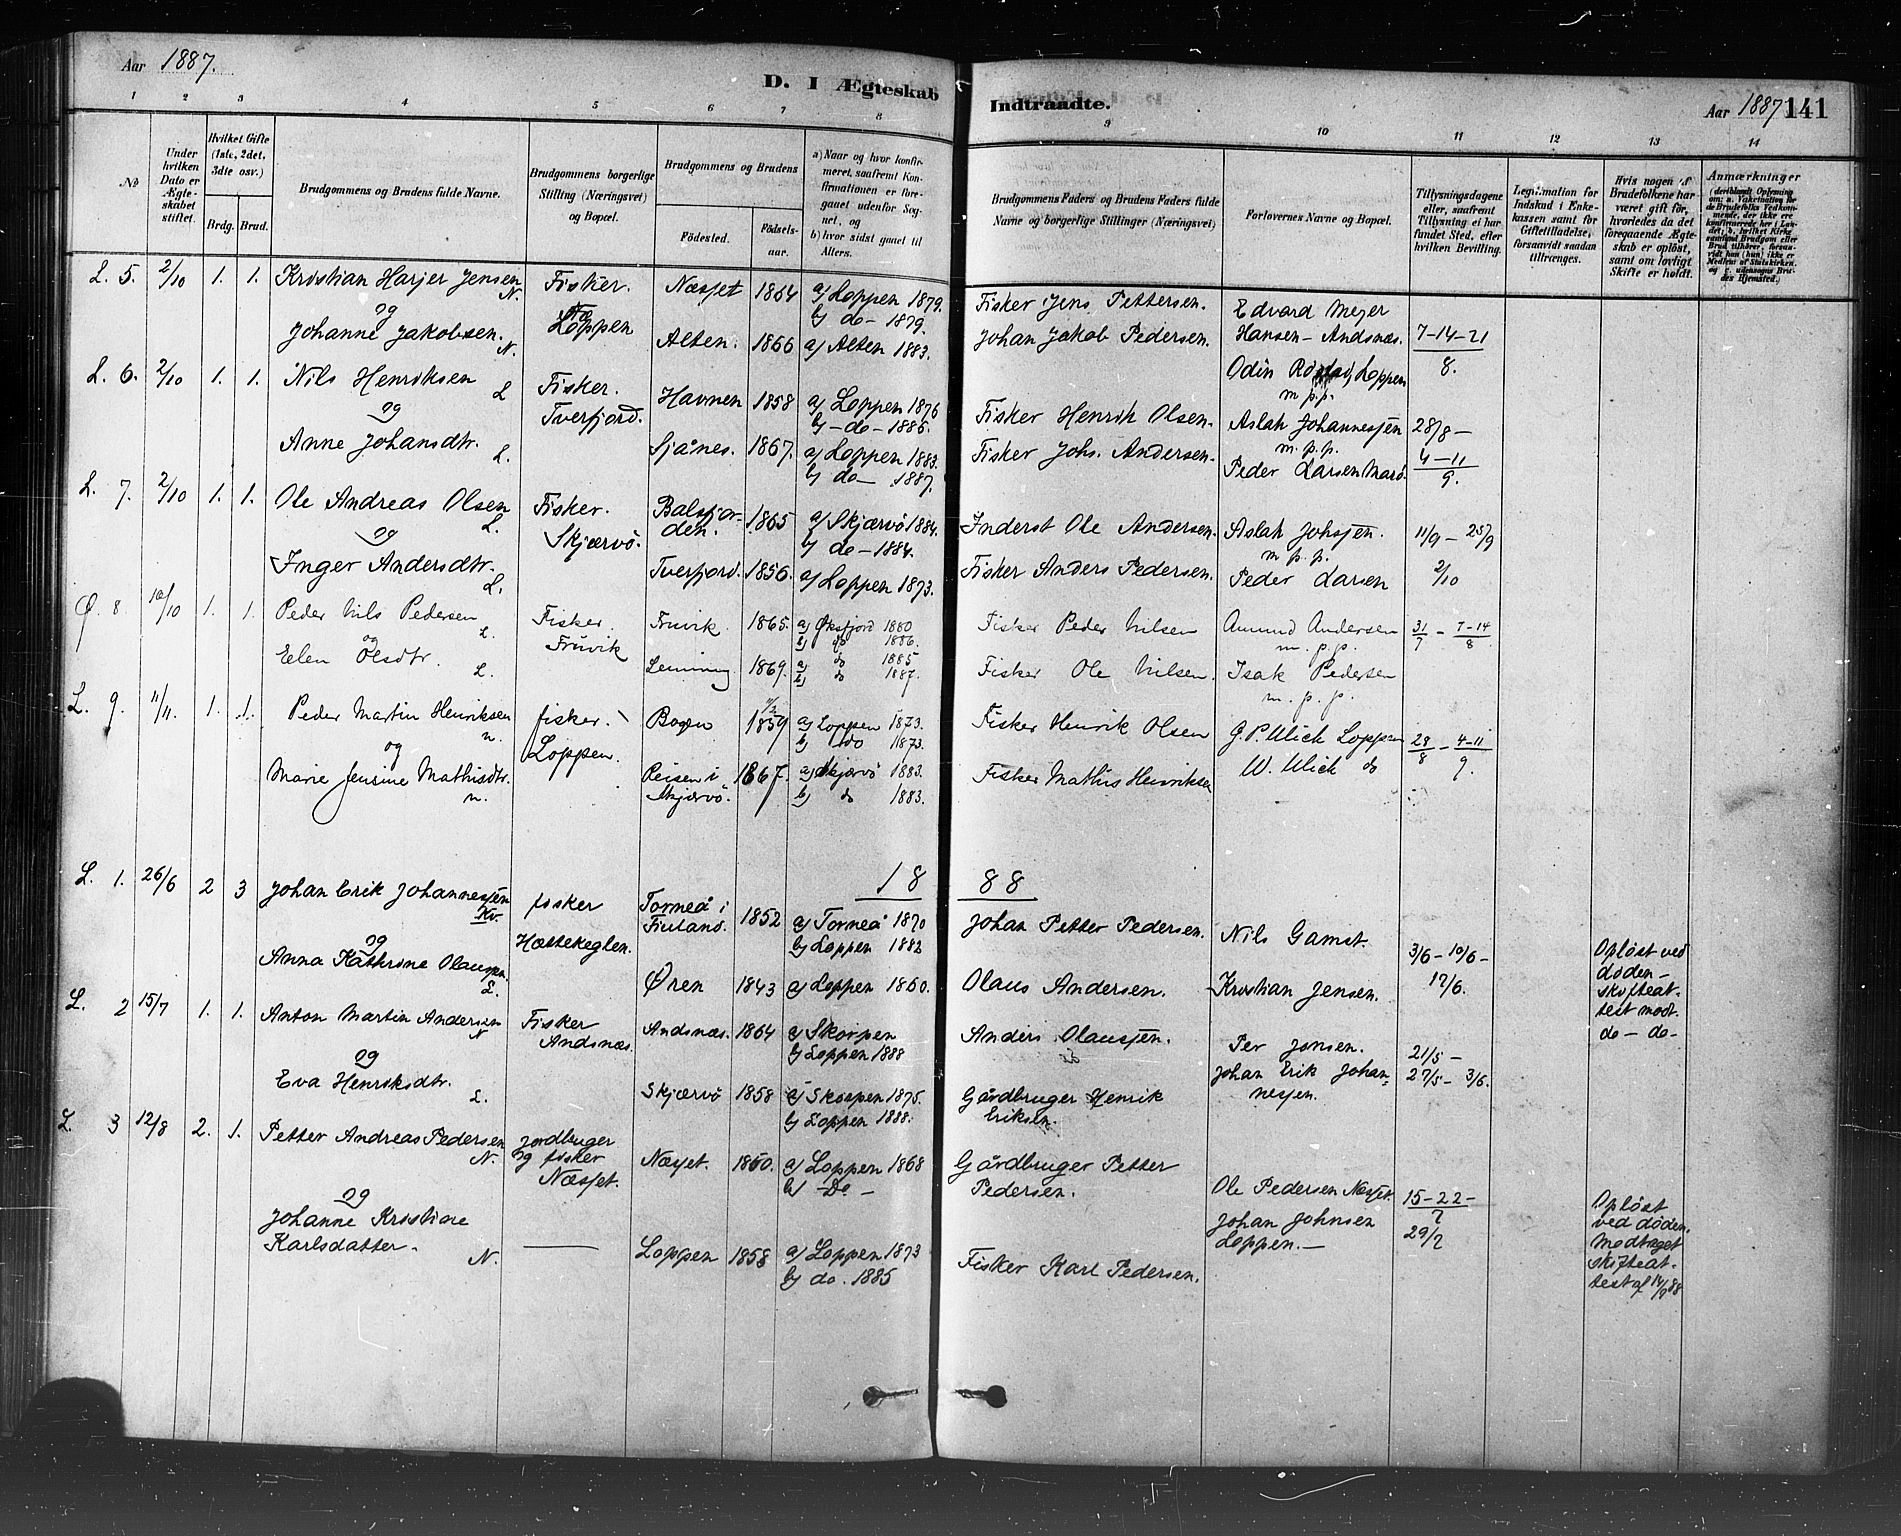 Aar 1887.
D. I Ægteskab
Indtraadte.
Aar 1887 141
1 2 3 4 5 6 7 8 9 10 11 12 13 14
No
Under hvilken Dato er Ægteskabet stiftet.
Hvilket Gifte (1ste, 2det, 3die osv.)
Brdg. Brud.
Brudgommens og Brudens fulde Navne.
Brudgommens borgerlige Stilling (Næringsvei) og Bopæl.
Brudgommens og Brudens
Fødested. Fødselsaar.
a) Naar og hvor konfirmeret, saafremt Konfirmationen er foregaaet udenfor Sognet, og
b) hvor sidst gaaet til Alters.
Brudgommens Faders og Brudens Faders fulde Navne og borgerlige Stillinger (Næringsvei)
Forlovernes Navne og Bopæl.
Tillysningsdagene eller, saafremt Tillysning ei har fundet Sted, efter hvilken Bevilling.
Legitimation for Indskud i Enkekassen samt for Giftetilladelse, forsaavidt saadan tiltrænges.
Hvis nogen af Brudefolkene har været gift før, hvorledes da det foregaaende Ægteskab er opløst, samt om lovligt Skifte er holdt.
Anmærkninger
L. 5. 2/10 1. 1. Kristian Harjer Jensen N. Fisker. Næsset 1864 a) Loppen 1879. b) do - 1879. Fisker Jens Pettersen. Edvard Meyer
og Loppen
Johanne Jakobsen. N. Alten. 1866 a) Alten 1883. Johan Jakob Pedersen. Hansen - Andsnæs. 7-14-21
Loppen 8.
m.p.p.
L. 6. 2/10 1. 1. Nils Henriksen L Fisker. Havnen 1858 a) Loppen 1876 b) - do - 1885. Fisker Henrik Olsen. Aslak Johannesjen 28/8 -
og Tverfjord. m.p.p.
Anne Johansdtr. L. Sjånes. 1867. a) Loppen 1883. b) do - 1887. Fisker Johs. Andersen. Peder Larsen 4-11 9.
L. 7. 2/10 1. 1. Ole Andreas Olsen L. Fisker. Balsfjorden. 1865 a) Skjærvö 1884. b) do - 1884. Inderst Ole Andersen. Aslak Johsjen. 11/9 - 25/9
og Skjærvö. m.p.p.
Inger Andersdtr. L. Tverfjord. 1856. a) Loppen 1873. Fisker Anders Pedersen. Peder Larsen 2/10
Ø. 8. 10/10 1. 1. Peder Nils Pedersen L. Fisker. Fruvik. 1865. a) Øksfjord 1880 b) do 1886. Fisker Peder Nilsen Amund Andersen 31/7 - 7-14/8
og Fruvik m.p.p.
Elen Olsdtr. L. 1869. a) do 1885 b) do 1887. Fisker Ole Nilsen. Isak Pedersen
m.p.p.
L. 9. 11/11. 1. 1. Peder Martin Henriksen n. fisker. Bogen 1859 a) Loppen 1873. b) do 1873. Fisker Henrik Olsen G. P. Ulich Loppen 28/8 - 4-11/9.
og Loppen.
Marie Jensine Mathisdtr. n. Reisen i Skjervö. 1867. a) Skjærvö 1883. b) do 1883. Fisker Mathis Henriksen W. Ulich do
18 88
L. 1. 26/6 2 3 Johan Erik Johannesjen Kv. fisker Torneå i Finland. 1852 a) Torneå 1870 b) Loppen 1882 Johan Petter Pedersen. Nils Gamst. 3/6 - 10/6 - Opløst ved døden - skifteattest modt.
og Hættekeglen.
Anna Kathrine Olausen. L. Øren 1843 a) Loppen 1860. Olaus Andersen. Kristian Jensen. 17/6. do - do -
L. 2 15/7 1. 1. Anton Martin Andersen N Fisker Andsnæs. Andsnæs. 1864 a) Skorpen b) Loppen 1888 Anders Olausjen. Per Jonsen. 21/5 -
og
Eva Henriksdtr. L. Skjærvö 1858 a) Skorpen 1875. b) Loppen 1888. Gårdbruger Henrik Eriksen. Johan Erik Johannesjen. 27/5 - 3/6.
L. 3 12/8 2. 1. Petter Andreas Pedersen N. Jordbruger og fisker Næsset. Næsset. 1850. a) Loppen 1868 b) - Do - Gårdbruger Petter Pedersen. Ole Pedersen Næsset. 15-22-/7 Opløst ved døden, modtaget skifteattest af 14/9 88
og
Johanne Kristine Karlsdatter. N. Loppen 1858 a) Loppen 1873 b) do. 1885 Fisker Karl Pedersen. Johan Johnsen Loppen. - 29/7